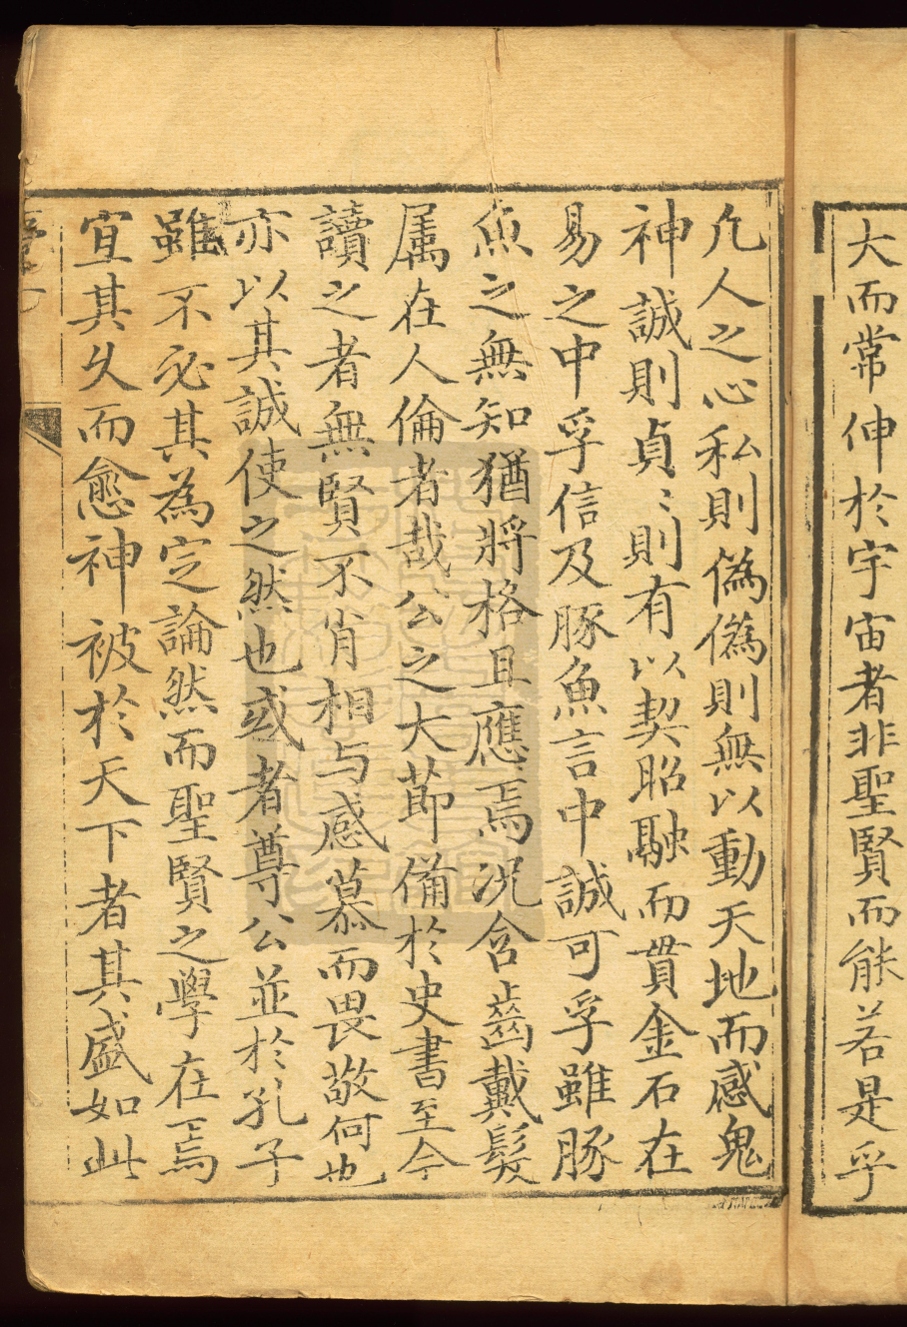 大而常伸於宇宙者非聖賢而能若是乎
凢人之心私則偽偽則無以動天地而感鬼
神誠則貞〻則有以契昭融而貫金石在
易之中孚信及豚魚言中誠可孚雖豚
魚之無知猶將格且應焉況含齒戴髮
属在人倫者哉公之大莭備於史書至今
讀之者無賢不肖相与感慕而畏敬何也
亦以其誠使之然也或者尊公並於孔子
雖不必其為定論然而聖賢之學在焉
宜其久而愈神被於天下者其盛如此